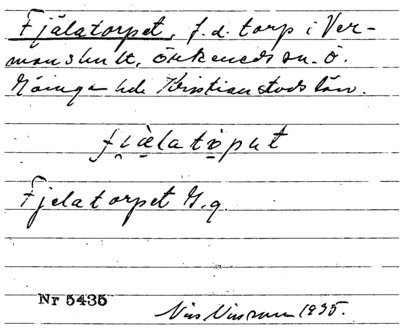 Fjälatorpet, f.d. torp i Ver-
manshult, Örkeneds sn. Ö.
Göinge hd. Kristianstads län.
fjälatoput
Fjelatorpet G.q.
Nr 5435
Nils Nilsson 1935.